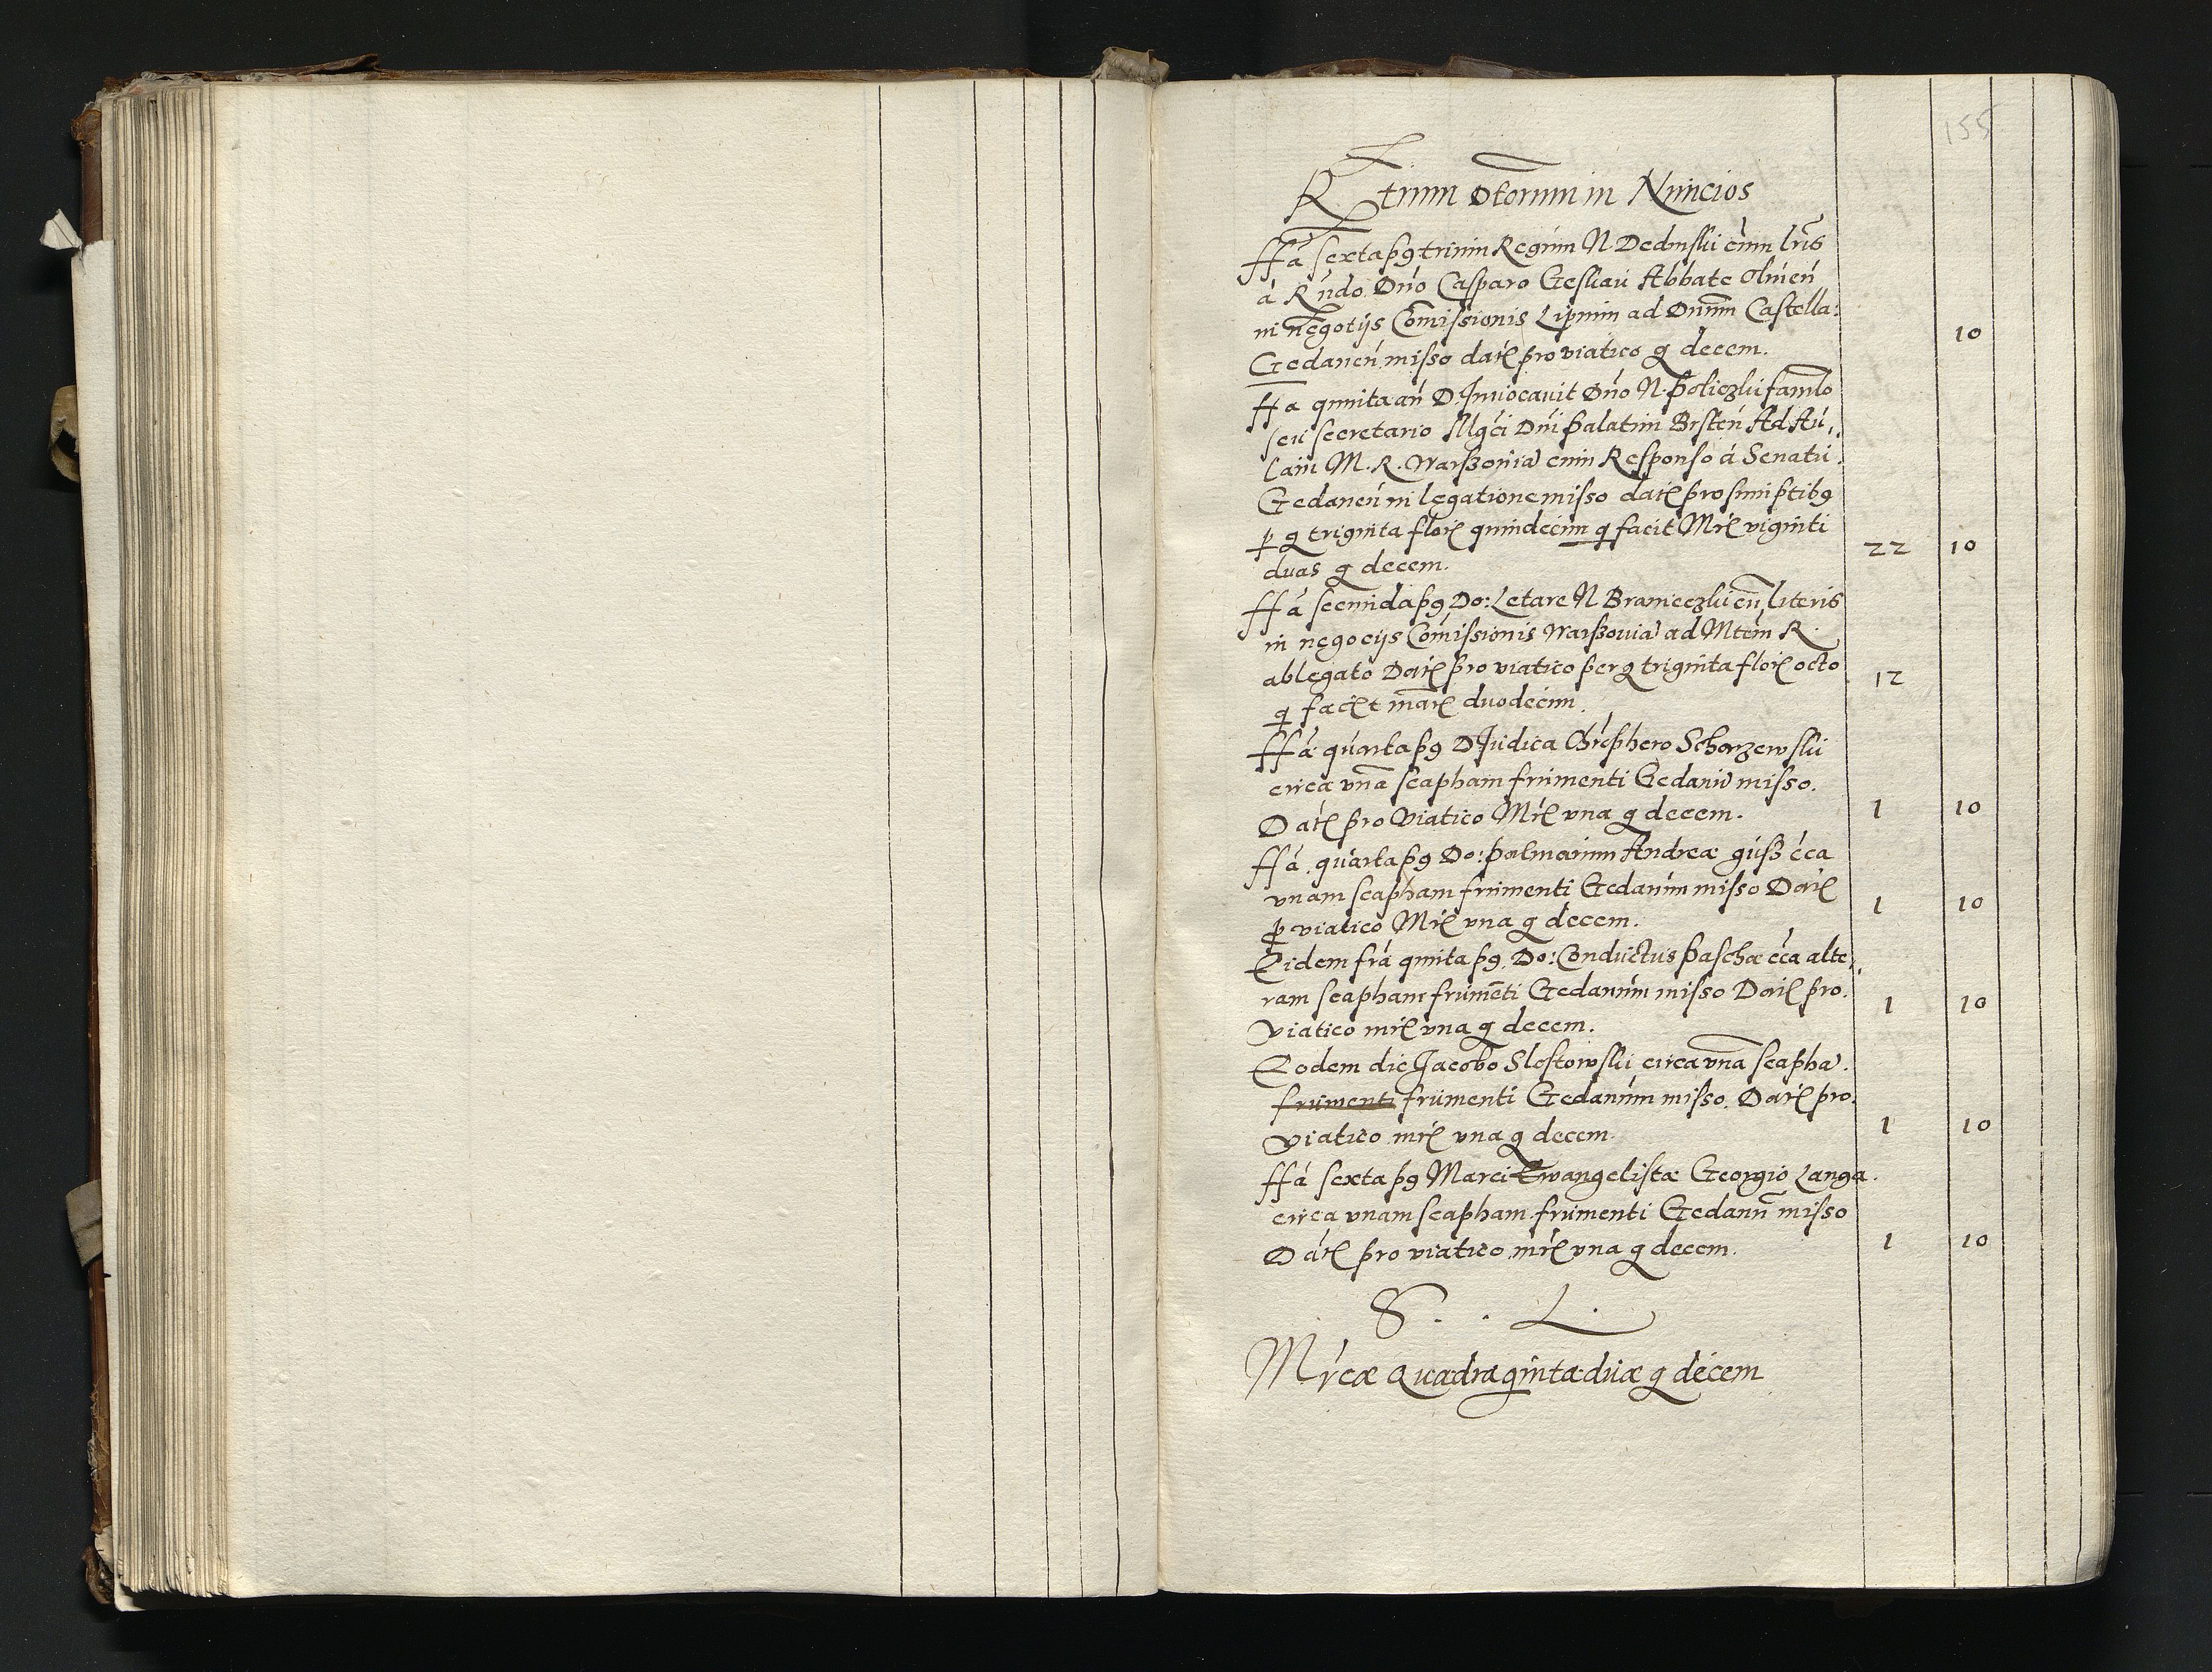 155
R trium Dtorum in Nuncios
ffa sexta pg trium Regum N Dedinski cum lris
á Rndo Dno Casparo Geskau Abbate Oliuen
in negotijs Comissionis Lipnim ad Dnum Castella:
Gedanen misso dare pro viatico g decem. 10
ffa quinta an D. Inuocauit Dno N. Policzki famlo
seu secretario Mgci Dni Palatini Brsten Ad Au,,
lam M. R. Warßouia cum Responso á Senatu
Gedanen in legatione misso dare pro sumptibg
p g triginta flore quindecim q facit Mre viginti
duas g decem. 22 10
ffa secunda pg Do: Letare N Branieczki cu literis
in negocijs Comissionis Warßouia ad Mtem R.
ablegato Dare pro viatico per g triginta flore octo
q facit mare duodecim. 12
ffá quarta pg D Judica Chrophero Schorzewski
circa vna scapham frumenti Gedanu misso.
Dare pro Viatico Mre vna g decem. 1 10
ffá quarta pg Do: palmarum Andreæ guß cca
vnam scapham frumenti Gedanum misso Dare
p viatico Mre vna g decem. 1 10
Eidem fra quinta pg Do: Conductus Paschæ cca alte,,
ram scapham frumeti Gedanum misso Dare pro.
viatico mre vna g decem. 1 10
Eodem die Jacobo Slostowski circa vna scapha.
frumenti frumenti Gedanum misso. Dare pro.
viatico mre vna g decem 1 10
ffá sexta pg Marci Ewangelistæ Georgio Langa.
circa vnam scapham frumenti Gedanu misso
Dare pro viatico mre vna g decem. 1 10
S. . L.
Mrcæ Quadraginta duæ g decem